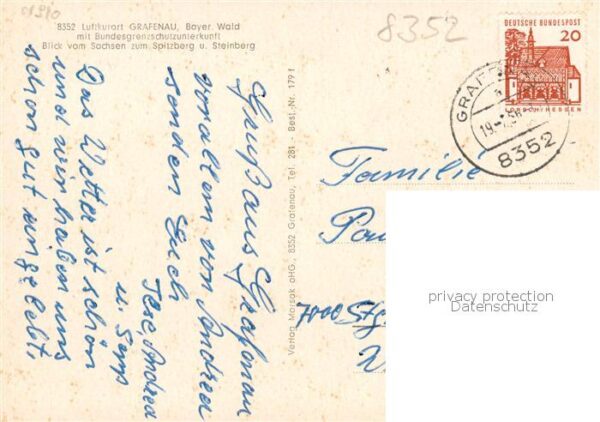 8352 Luftkurort GRAFENAU, Bayer. Wald
mit Bundesgrenzschutzunterkunft
Blick vom Sachsen zum Spitzberg u. Steinberg
8352
DEUTSCHE BUNDESPOST
20
LORSCH/HESSEN
GRAFENAU
8352
Gruß aus Grafenau
vor allem von Andrea
senden Euch
Andrea
Das Wetter ist schön
und wir haben uns
schon gut eingelebt.
Verlag Morsak oHG., 8352 Grafenau, Tel. 281 - Best. Nr. 179 f
Familie
7000 Stg
privacy protection
Datenschutz